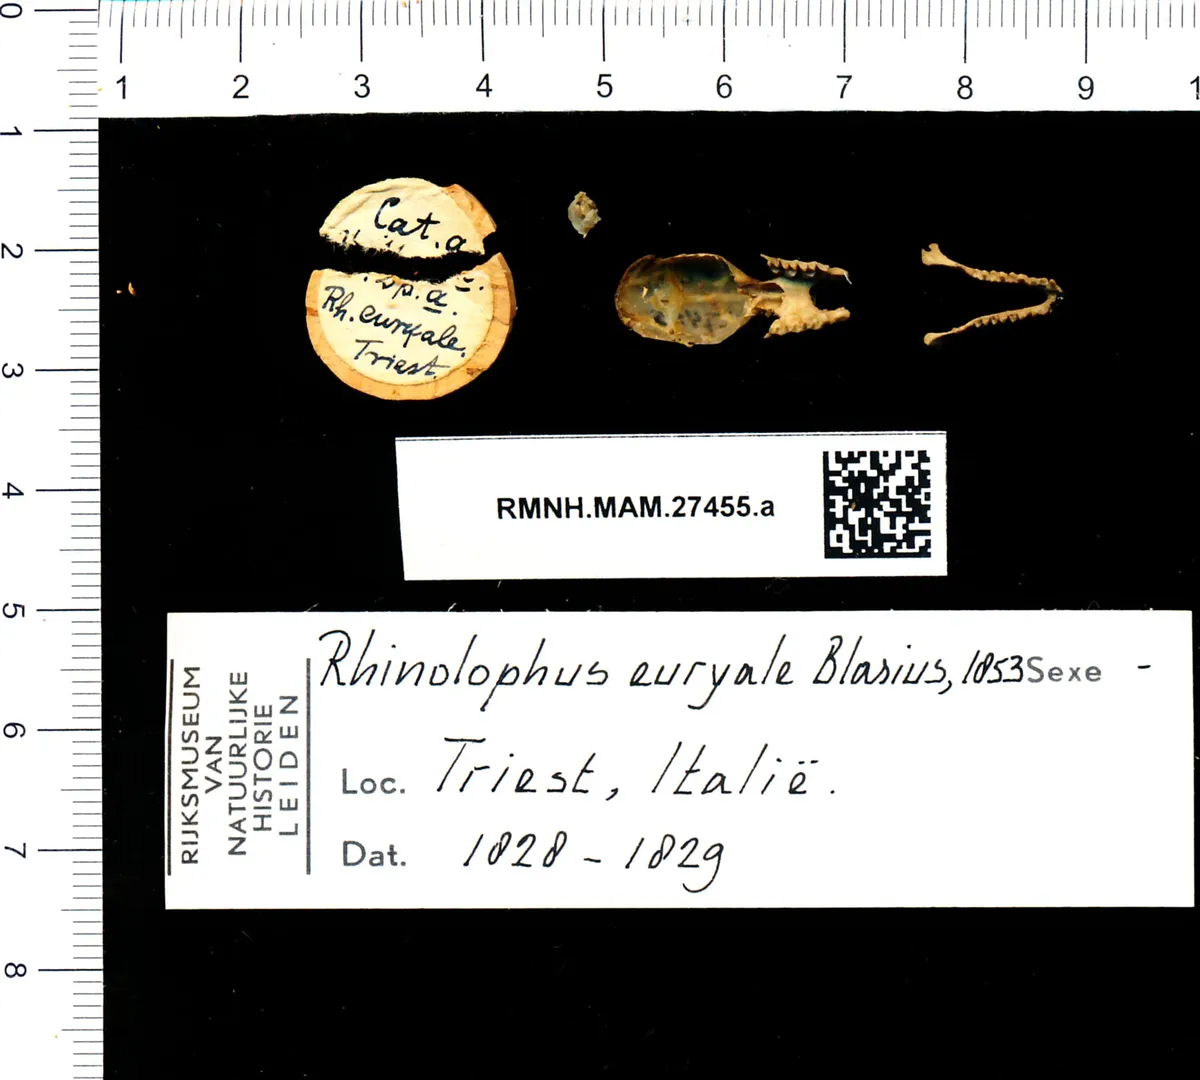 0
1 2 3 4 5 6 7 8 9 1
1
2
3
4
5
6
7
8
Cat. a
sp. a.
Rh. euryale.
Triest.
RMNH.MAM.27455.a
RIJKSMUSEUM
VAN
NATUURLIJKE
HISTORIE
LEIDEN
Rhinolophus euryale Blasius, 1853 Sexe -
Loc. Triest, Italië.
Dat. 1828 - 1829